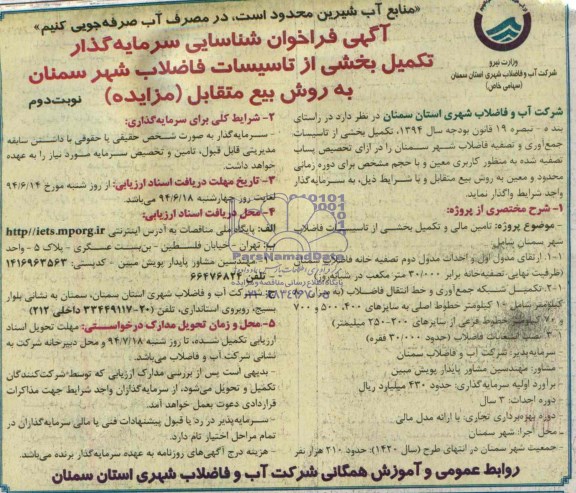 «منابع آب شیرین محدود است، در مصرف آب صرفه‌جویی کنیم»
آگهی فراخوان شناسایی سرمایه‌گذار
تکمیل بخشی از تاسیسات فاضلاب شهر سمنان
به روش بیع متقابل (مزایده)
نوبت دوم
وزارت نیرو
شرکت آب و فاضلاب شهری استان سمنان
(سهامی خاص)
شرکت آب و فاضلاب شهری استان سمنان در نظر دارد در راستای
بند ه - تبصره ۱۹ قانون بودجه سال ۱۳۹۴، تکمیل بخشی از تاسیسات
جمع‌آوری و تصفیه فاضلاب شهر سمنان را در ازای تخصیص پساب
تصفیه شده به منظور کاربری معین و با حجم مشخص برای دوره زمانی
محدود و معین به روش بیع متقابل و با شرایط ذیل، به سرمایه‌گذار
واجد شرایط واگذار نماید.
۱- شرح مختصری از پروژه:
- موضوع پروژه: تامین مالی و تکمیل بخشی از تاسیسات فاضلاب
شهر سمنان شامل:
۱-۱. ارتقای مدول اول و احداث مدول دوم تصفیه خانه فاضلاب
(ظرفیت نهایی تصفیه‌خانه برابر ۳۰/۰۰۰ متر مکعب در شبانه‌روز)
۱-۲. تکمیل شبکه جمع‌آوری و خط انتقال فاضلاب (به میزان
کیلومتر شامل ۱۰ کیلومتر خطوط اصلی به سایزهای ۴۰۰، ۵۰۰ و ۷۰۰
و کیلومتر خطوط فرعی از سایزهای ۳۰۰-۲۵۰ میلیمتر)
۱-۳. نصب انشعابات فاضلاب (حدود ۳۰/۰۰۰ فقره)
- سرمایه‌پذیر: شرکت آب و فاضلاب سمنان
- مشاور: مهندسین مشاور پایدار پویش مبین
- برآورد اولیه سرمایه‌گذاری: حدود ۴۳۰ میلیارد ریال
- دوره احداث: ۳ سال
- دوره بهره‌برداری تجاری: با ارائه مدل مالی
- محل اجرا: شهر سمنان
- جمعیت شهر سمنان در انتهای طرح (سال ۱۴۲۰): حدود ۲۱۰ هزار نفر
۲- شرایط کلی برای سرمایه‌گذاری:
- سرمایه‌گذار به صورت شخص حقیقی یا حقوقی با داشتن سابقه
مدیریتی قابل قبول، تامین و تخصیص سرمایه مورد نیاز را به عهده
خواهد داشت.
۳- تاریخ مهلت دریافت اسناد ارزیابی: از روز شنبه مورخ ۹۴/۶/۱۴
لغایت روز چهارشنبه ۹۴/۶/۱۸ می‌باشد.
۴- محل دریافت اسناد ارزیابی:
الف: پایگاه ملی مناقصات به آدرس اینترنتی http://iets.mporg.ir
ب: تهران - خیابان فلسطین - بن‌بست عسگری - پلاک ۵ - واحد
مهندسین مشاور پایدار پویش مبین - کدپستی: ۱۴۱۶۹۶۳۵۶۳
تلفن ۶۶۴۷۶۸۲۴
ج: شرکت آب و فاضلاب شهری استان سمنان، سمنان به نشانی بلوار
بسیج، روبروی استانداری، تلفن (۲۰-۳۳۴۴۹۱۱۷ داخلی ۲۱۲)
۵- محل و زمان تحویل مدارک درخواستی: مهلت تحویل اسناد
ارزیابی تکمیل شده، تا روز شنبه ۹۴/۷/۱۸ و محل دبیرخانه شرکت به
نشانی شرکت آب و فاضلاب می‌باشد.
- بدیهی است پس از بررسی مدارک ارزیابی که توسط شرکت‌کنندگان
تکمیل و تحویل می‌شود، از سرمایه‌گذاران واجد شرایط جهت مذاکرات
قراردادی دعوت بعمل خواهد آمد.
- سرمایه‌پذیر در رد یا قبول پیشنهادات فنی یا مالی سرمایه‌گذاران در
تمام مراحل اختیار تام دارد.
- هزینه درج آگهی‌های روزنامه به عهده سرمایه‌گذار برنده می‌باشد.
روابط عمومی و آموزش همگانی شرکت آب و فاضلاب شهری استان سمنان
ParsNamadData